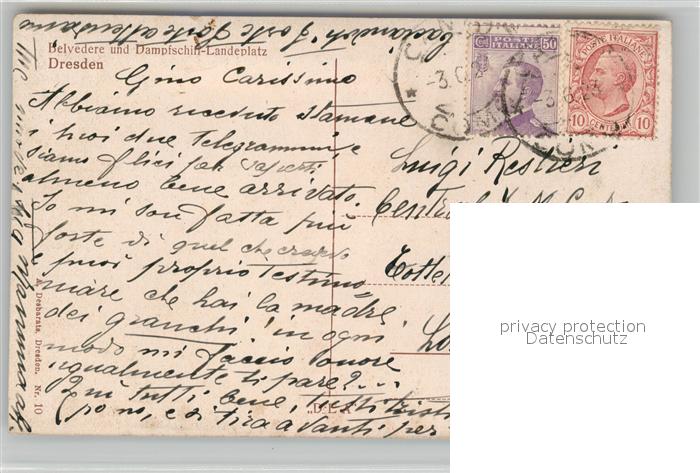 Belvedere und Dampfschiff-Landeplatz
Dresden
Gino Carissimo
Abbiamo ricevuto stamane
i tuoi due telegrammi, e
siamo felici per saperti
almeno bene arrivato.
Io mi son fatta più
forte di quel che credevo
e puoi proprio testimo
niare che hai la madre
dei granchi! in ogni
modo mi faccio onore
ugualmente ti pare?...
Qui tutti bene, tutti
po no, e si tira avanti per
A. Desbarats, Dresden. Nr. 10
"D.L.A"
POSTE ITALIANE
Cmi 50
POSTE ITALIANE
10 CENTESIMI 10
COMO
Luigi Restieri
Central Y.M.C.
Totte
Lo
privacy protection
Datenschutz